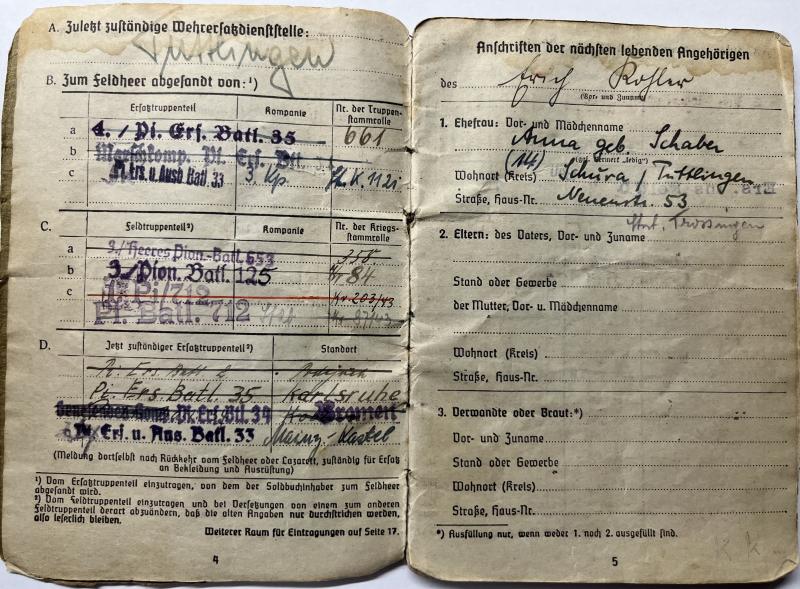 A. Zuletzt zuständige Wehrersatzdienststelle:
Tuttlingen
B. Zum Feldheer abgesandt von:¹)
Ersatztruppenteil Kompanie Nr. der Truppenstammrolle
a 4./Pi. Ers. Batl. 35 661
b Marschkomp. Pi. Ers. Btl. 35
c Pi. Ers. u. Ausb. Batl. 33 3. Kp
C. Feldtruppenteil²) Kompanie Nr. der Kriegsstammrolle
a 3./Heeres Pion.-Batl. 653 358
b 3./Pion. Batl. 125 Nr 84
c Pi/712 Kr 203/43
Pi. Batl. 712
D. Jetzt zuständiger Ersatztruppenteil²) Standort
Pi. Ers. Batl
Pi. Ers. Batl. 35 Karlsruhe
Genesenden Komp. Pi. Ers. Btl. 34 Bremen
Pi. Ers. u. Aus. Batl. 33 Mainz-Kastel
(Meldung dortselbst nach Rückkehr vom Feldheer oder Lazarett, zuständig für Ersatz
an Bekleidung und Ausrüstung)
¹) Vom Ersatztruppenteil einzutragen, von dem der Soldbuchinhaber zum Feldheer
abgesandt wird.
²) Vom Feldtruppenteil einzutragen und bei Versetzungen von einem zum anderen
Feldtruppenteil derart abzuändern, daß die alten Angaben nur durchstrichen werden,
also leserlich bleiben.
Weiterer Raum für Eintragungen auf Seite 17.
4
Anschriften der nächsten lebenden Angehörigen
des Erich Kohler
(Vor- und Zuname)
1. Ehefrau: Vor- und Mädchenname
Anna geb. Schaber
(ggf. Vermerk „ledig")
(14)
Wohnort (Kreis) Schura / Tuttlingen
Straße, Haus-Nr. Neuenstr. 53
Trossingen
2. Eltern: des Vaters, Vor- und Zuname
Stand oder Gewerbe
der Mutter, Vor- u. Mädchenname
Wohnort (Kreis)
Straße, Haus-Nr.
3. Verwandte oder Braut:*)
Vor- und Zuname
Stand oder Gewerbe
Wohnort (Kreis)
Straße, Haus-Nr.
*) Ausfüllung nur, wenn weder 1. noch 2. ausgefüllt sind.
5